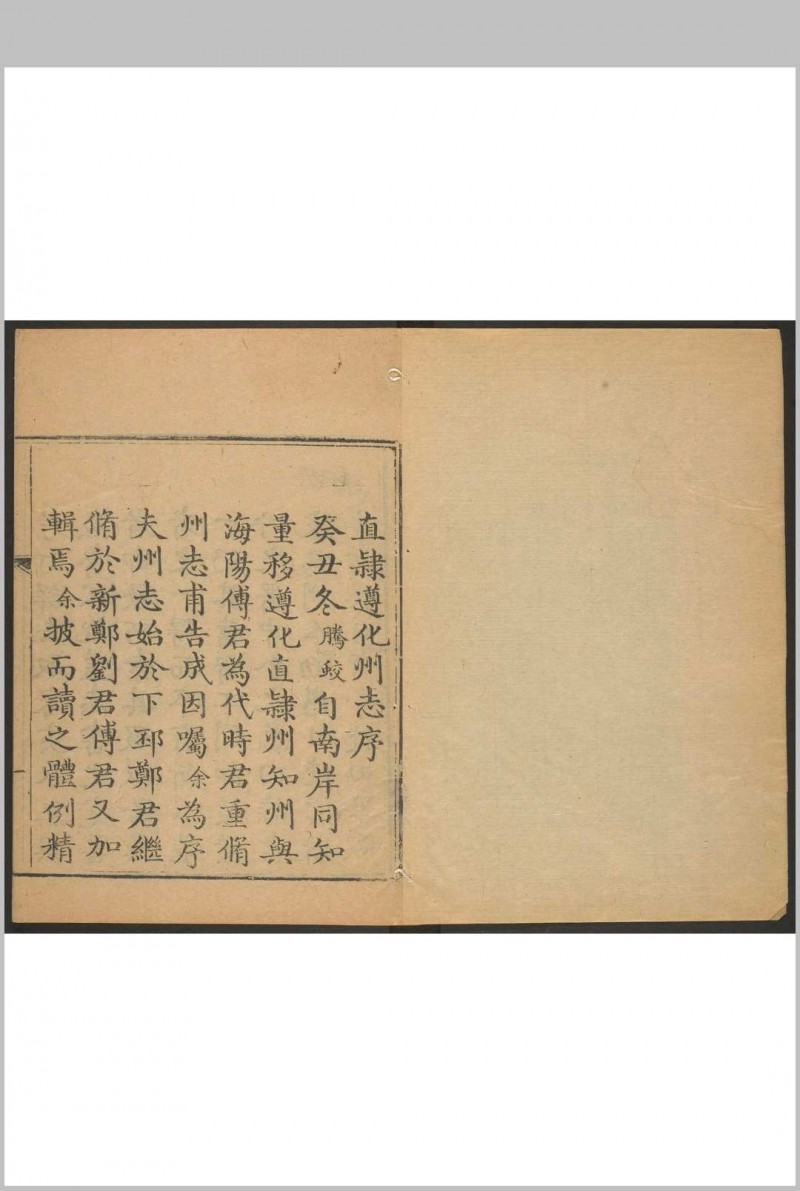 直隸遵化州志序
癸丑冬騰蛟自南岸同知
量移遵化直隸州知州與
海陽傅君為代時君重脩
州志甫告成因囑余為序
夫州志始於下邳鄭君繼
脩於新鄭劉君傅君又加
輯焉余披而讀之體例精